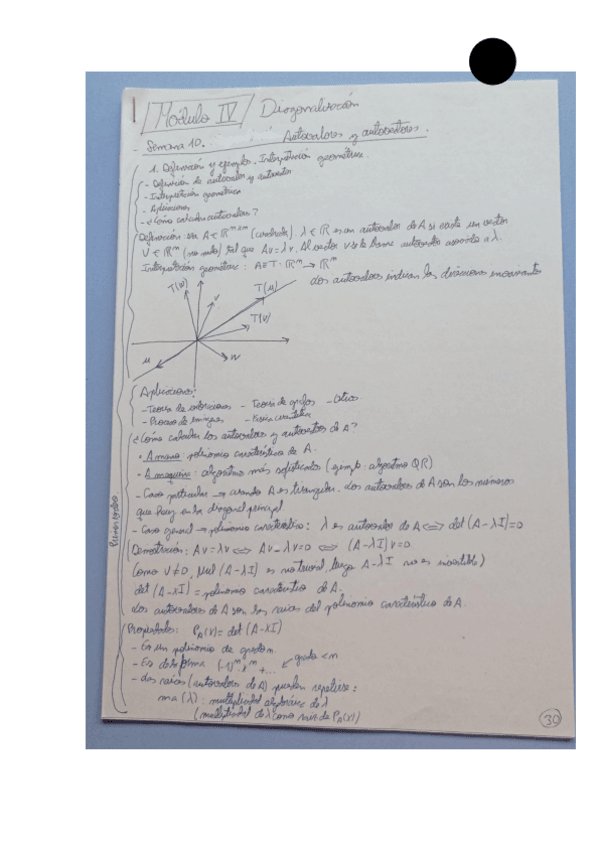 Módulo IV Diagonalización
- Semana 10. Autovalores y autovectores.
1. Definición y ejemplos. Interpretación geométrica.
- Definición de autovalor y autovector
- Interpretación geométrica
- Aplicaciones
- ¿Cómo calcular autovalores?
Definición: sea A ∈ ℝ (cuadrada). λ ∈ ℝ es un autovalor de A si existe un vector
V ∈ ℝᵐ (no nulo) tal que Av = λv. Al vector v se le llama autovector asociado a λ.
Interpretación geométrica: A ≡ T: ℝᵐ → ℝᵐ
Los autovectores indican las direcciones invariantes
T(v) v T(u)
T(v)
u w
Aplicaciones:
- Teoría de vibraciones - Teoría de grafos -
- Proceso de imágenes - Física cuántica
¿Cómo calcular los autovalores y autovectores de A?
• A mano: polinomio característico de A.
• A máquina: algoritmos más sofisticados (ejemplo: algoritmo QR)
- Caso particular → cuando A es triangular. Los autovalores de A son los números
que hay en la diagonal principal
- Caso general → polinomio característico: λ es autovalor de A ⟺ det(A-λI)=0
Demostración: Av = λv ⟺ Av - λv = 0 ⟺ (A-λI)v = 0
Como V≠0, Nul(A-λI) es no trivial, luego A-λI no es invertible)
det(A-λI) = polinomio característico de A.
Los autovalores de A son las raíces del polinomio característico de A.
Propiedades: P_A(λ) = det(A-λI)
- Es un polinomio de grado m.
- Es de la forma (-1)ᵐλᵐ + ... ↙ grado < m
- Las raíces (autovalores de A) pueden repetirse:
ma(λ): multiplicidad algebraica de λ
(multiplicidad de λ como raíz de P_A(λ))
30